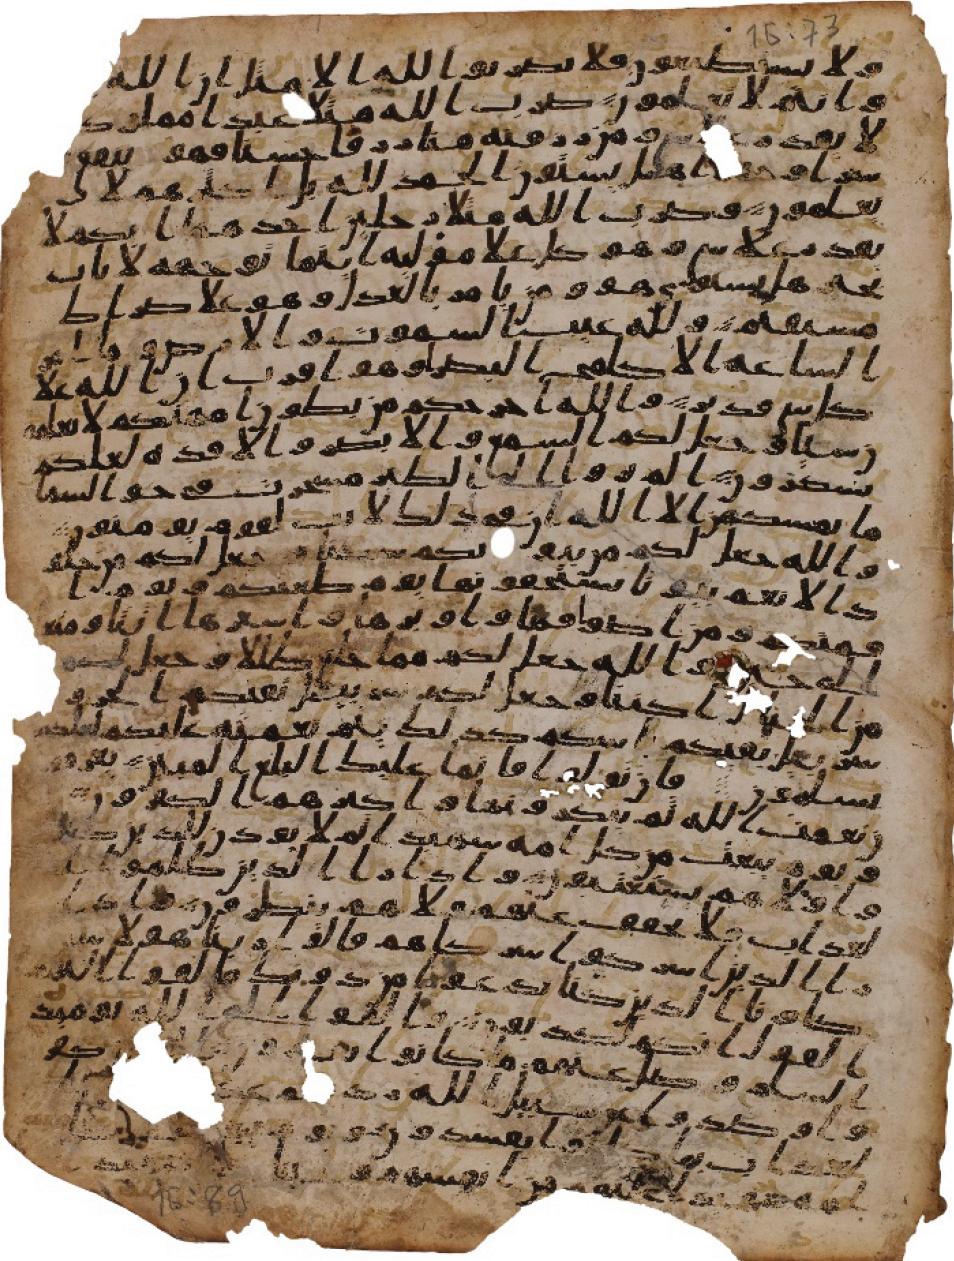 15:73
ولا يستطيعون فلا تضربوا لله الامثل ان الله
وانتم لا تعلمون ضرب الله مثلا عبدا مملوك
لا يقدر ومن رزقنه منا رزقا حسنا فهو ينفق
سرا وجهرا هل يستون الحمد لله بل اكثرهم لا
يعلمون وضرب الله مثلا رجلين احدهما ابكم لا
يقدر على شي وهو كل على موليه اينما يوجهه لا يات
بخير هل يستوي هو ومن يامر بالعدل وهو على صرط
مستقيم ولله غيب السموت والارض وما امر
الساعة الا كلمح البصر او هو اقرب ان الله على
كل شي قدير والله اخرجكم من بطون امهتكم لا تعلمو
ن شيا وجعل لكم السمع والابصر والافدة لعلكم
تشكرون الم يروا الى الطير مسخرت في جو السما
ما يمسكهن الا الله ان في ذلك لايت لقوم يومنون
والله جعل لكم من بيوتكم سكنا وجعل لكم من جلو
د الانعم بيوتا تستخفونها يوم ظعنكم ويوم ا
قمتكم ومن اصوافها واوبرها واشعرها اثثا ومتعا
الى حين والله جعل لكم مما خلق ظللا وجعل لكم
من الجبال اكننا وجعل لكم سربيل تقيكم الحر و
سربيل تقيكم باسكم كذلك يتم نعمته عليكم لعلكم
تسلمون فان تولوا فانما عليك البلغ المبين يعرفو
ن نعمت الله ثم ينكرونها واكثرهم الكفرون
ويوم نبعث من كل امة شهيدا ثم لا يوذن للذين كفر
وا ولا هم يستعتبون واذا را الذين ظلموا ا
لعذاب فلا يخفف عنهم ولا هم ينظرون واذا
را الذين اشركوا شركاهم قالوا ربنا هولا شر
كاونا الذين كنا ندعوا من دونك فالقوا اليهم
القول انكم لكذبون والقوا الى الله يومئذ
السلم وضل عنهم ما كانوا يفترون
وا وصدوا عن سبيل الله زدنهم
العذاب بما يفسدون ويوم
عليهم من انفسهم
16:89